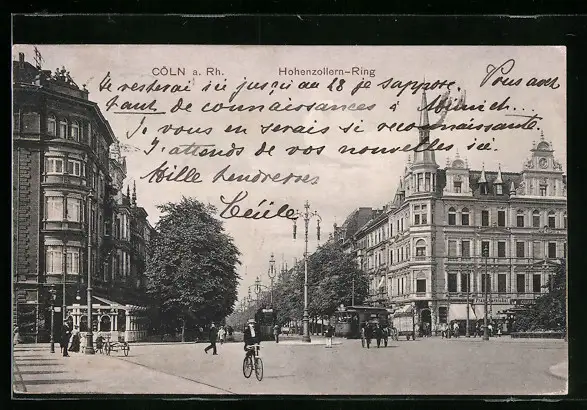 CÖLN a. Rh. Hohenzollern-Ring
Je resterai ici jusqu'au 28 je suppose. Vous avez
tant de connaissances à Munich...
Je vous en serais si reconnaissante.
J'attends de vos nouvelles ici.
Mille tendresses
Cécile